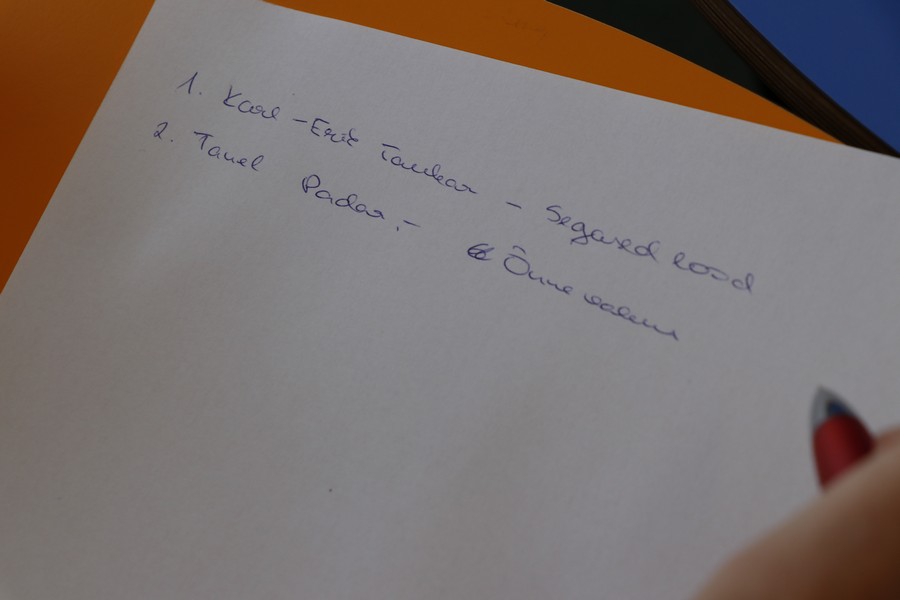 1. Karl-Erik Taukar - Segased lood
2. Tanel Padar - Õnne valem